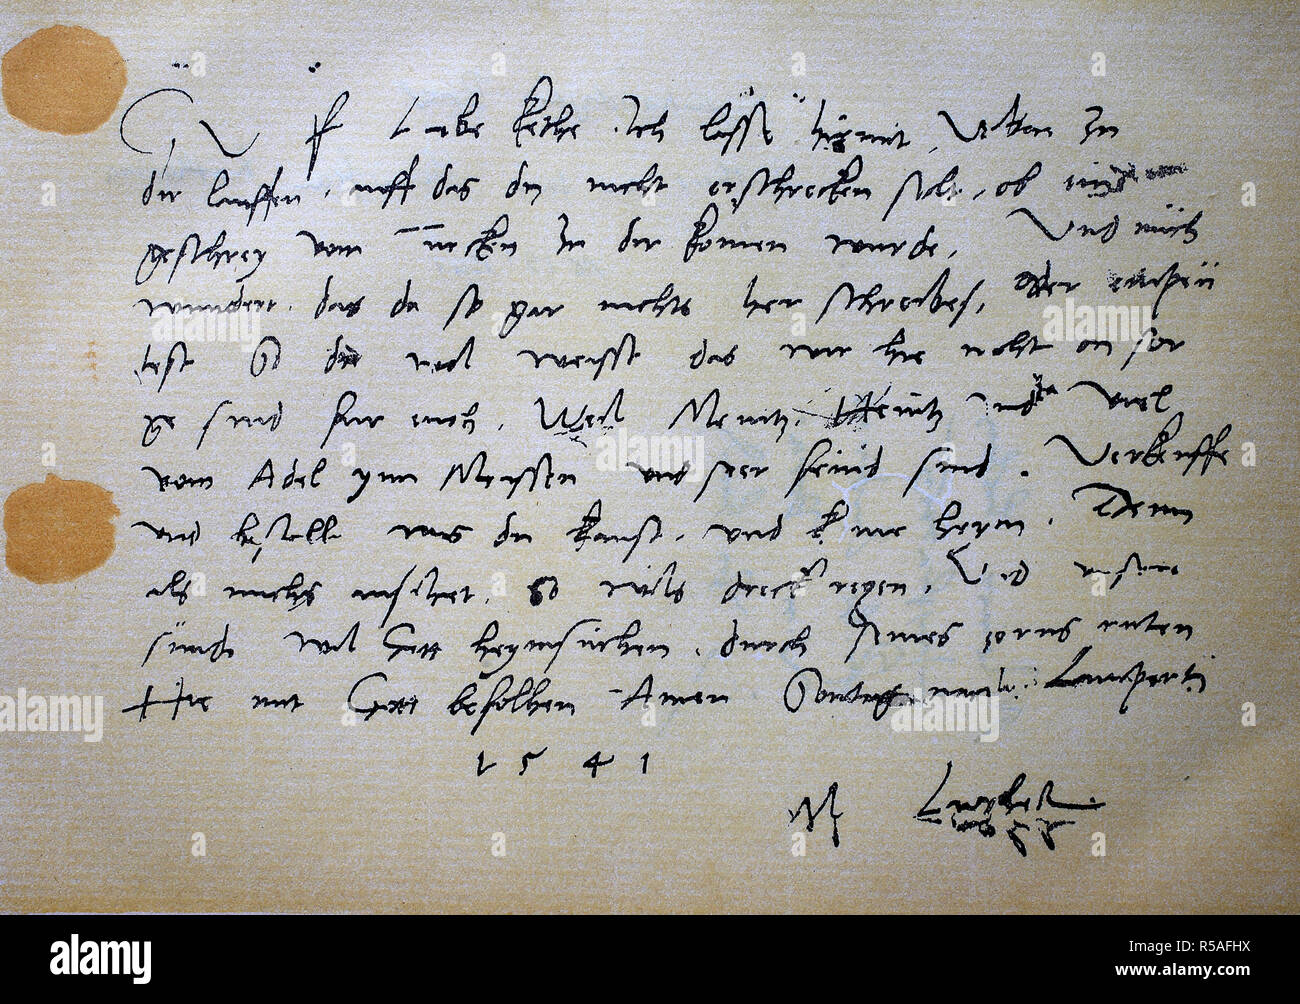 G V f Liebe Kethe. Ich lasse hiemit Urban zu
dir lauffen, auff das du nicht erschrecken solt, ob ein
geschrey vom Turcken zu dir komen wurde. Und mich
wundert, das du so gar nichts her schreibest, oder empeu
test So du wol weisst das wir hie nicht on sor
ge sind fur euch, Weil Meintz, Heintz und viel
vom Adel ynn Meissen uns seer feind sind. Verkeuffe
und bestelle was du kanst, und kome heym. Denn
als michs ansihet, so wils dreck regen, Und unser
sunde wil Gott heymsuchen, durch seines zorns ruten
Hie mit Gott befolhen Amen Sontag nach Lamperti
1541
M Luther
alamy
Image ID: R5AFHX
www.alamy.com